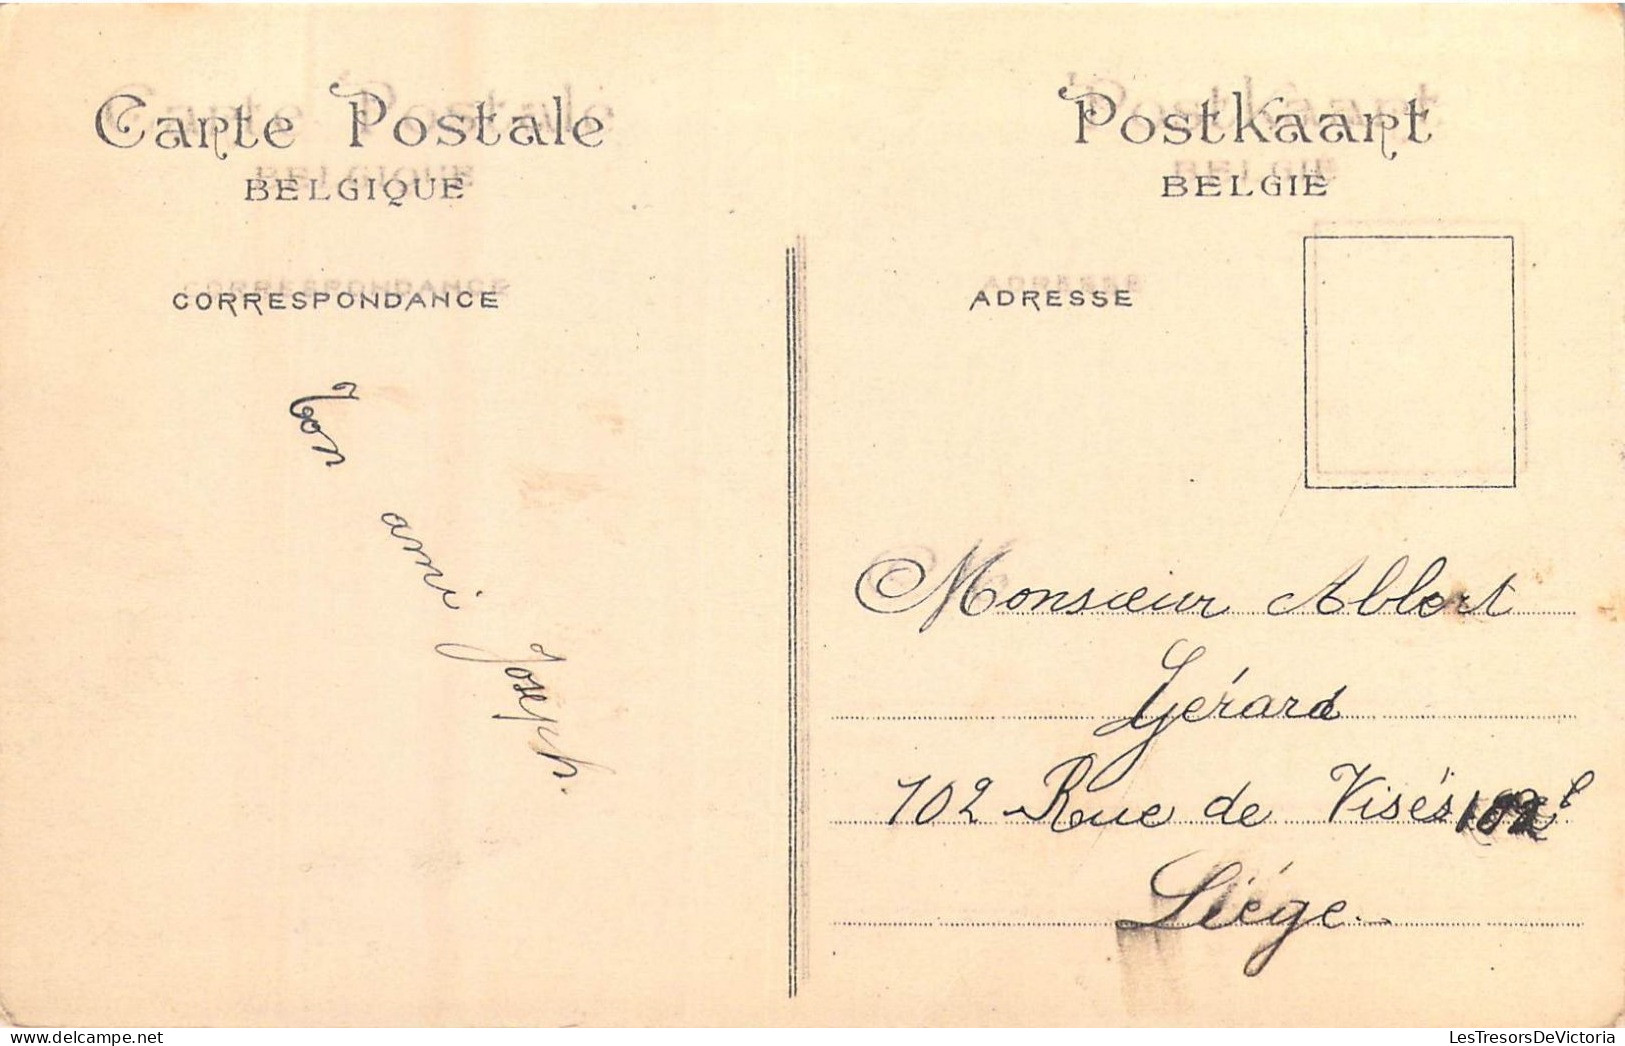 Carte Postale
BELGIQUE
CORRESPONDANCE
Ton
ami
Joseph.
Postkaart
BELGIE
ADRESSE
Monsieur Albert
Gérard
102 Rue de Visés 102
Liége
LesTresorsDeVictoria